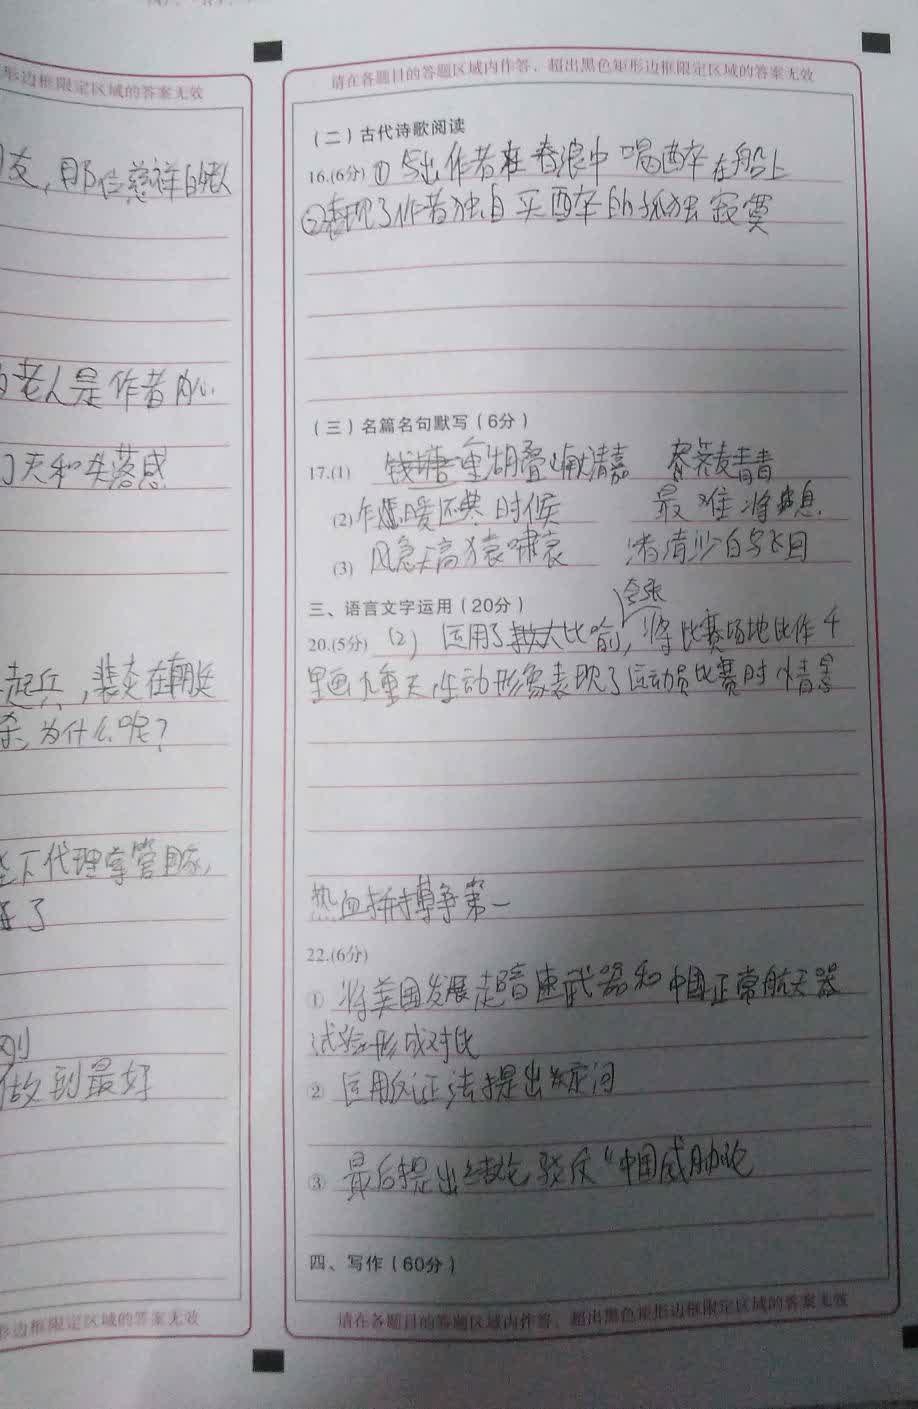 形边框限定区域的答案无效
友，那位慈祥的老人
老人是作者内心
和失落感
起兵，裴炎在朝廷
杀，为什么呢？
下代理掌管国家，
了
做到最好
形边框限定区域的答案无效
请在各题目的答题区域内作答，超出黑色矩形边框限定区域的答案无效
（二）古代诗歌阅读
16.(6分) ① 写出作者在春浪中喝醉卒在船上
②表现了作者独自买醉卒的孤独寂寞
（三）名篇名句默写（6分）
17.(1) 重湖叠巘清嘉 荠麦青青
(2) 乍暖还典时候 最难将息
(3) 风急天高猿啸哀 渚清沙白鸟飞回
三、语言文字运用（20分）
夸张
20.(5分) (2) 运用了比喻，将比赛场地比作千
里画九重天生动形象表现了运动员比赛时情景
热血拼搏争第一
22.(6分)
① 将美国发展超音速武器和中国正常航天器
试验形成对比
② 运用反证法提出疑问
③ 最后提出结论驳斥“中国威胁论
四、写作（60分）
请在各题目的答题区域内作答，超出黑色矩形边框限定区域的答案无效